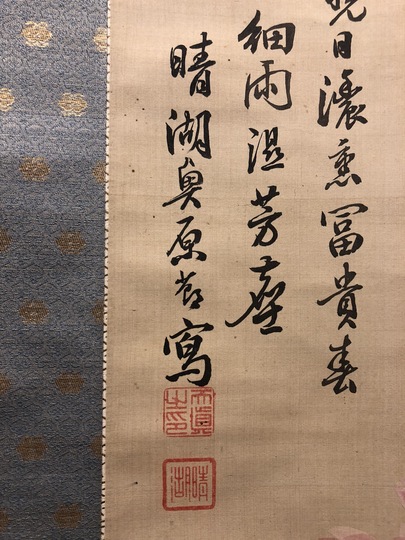 日濃熏富貴春
細雨湿芳塵
晴湖奥原節寫
晴湖